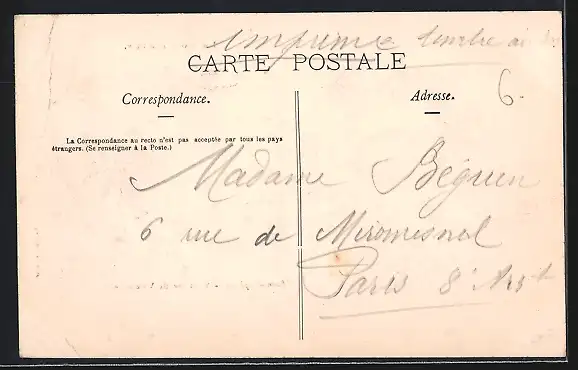 Imprimé timbre au
CARTE POSTALE
Correspondance.
Adresse.
6.
La Correspondance au recto n'est pas acceptée par tous les pays
étrangers. (Se renseigner à la Poste.)
Madame Béguen
6 rue de Miromesnil
Paris 8e Arst